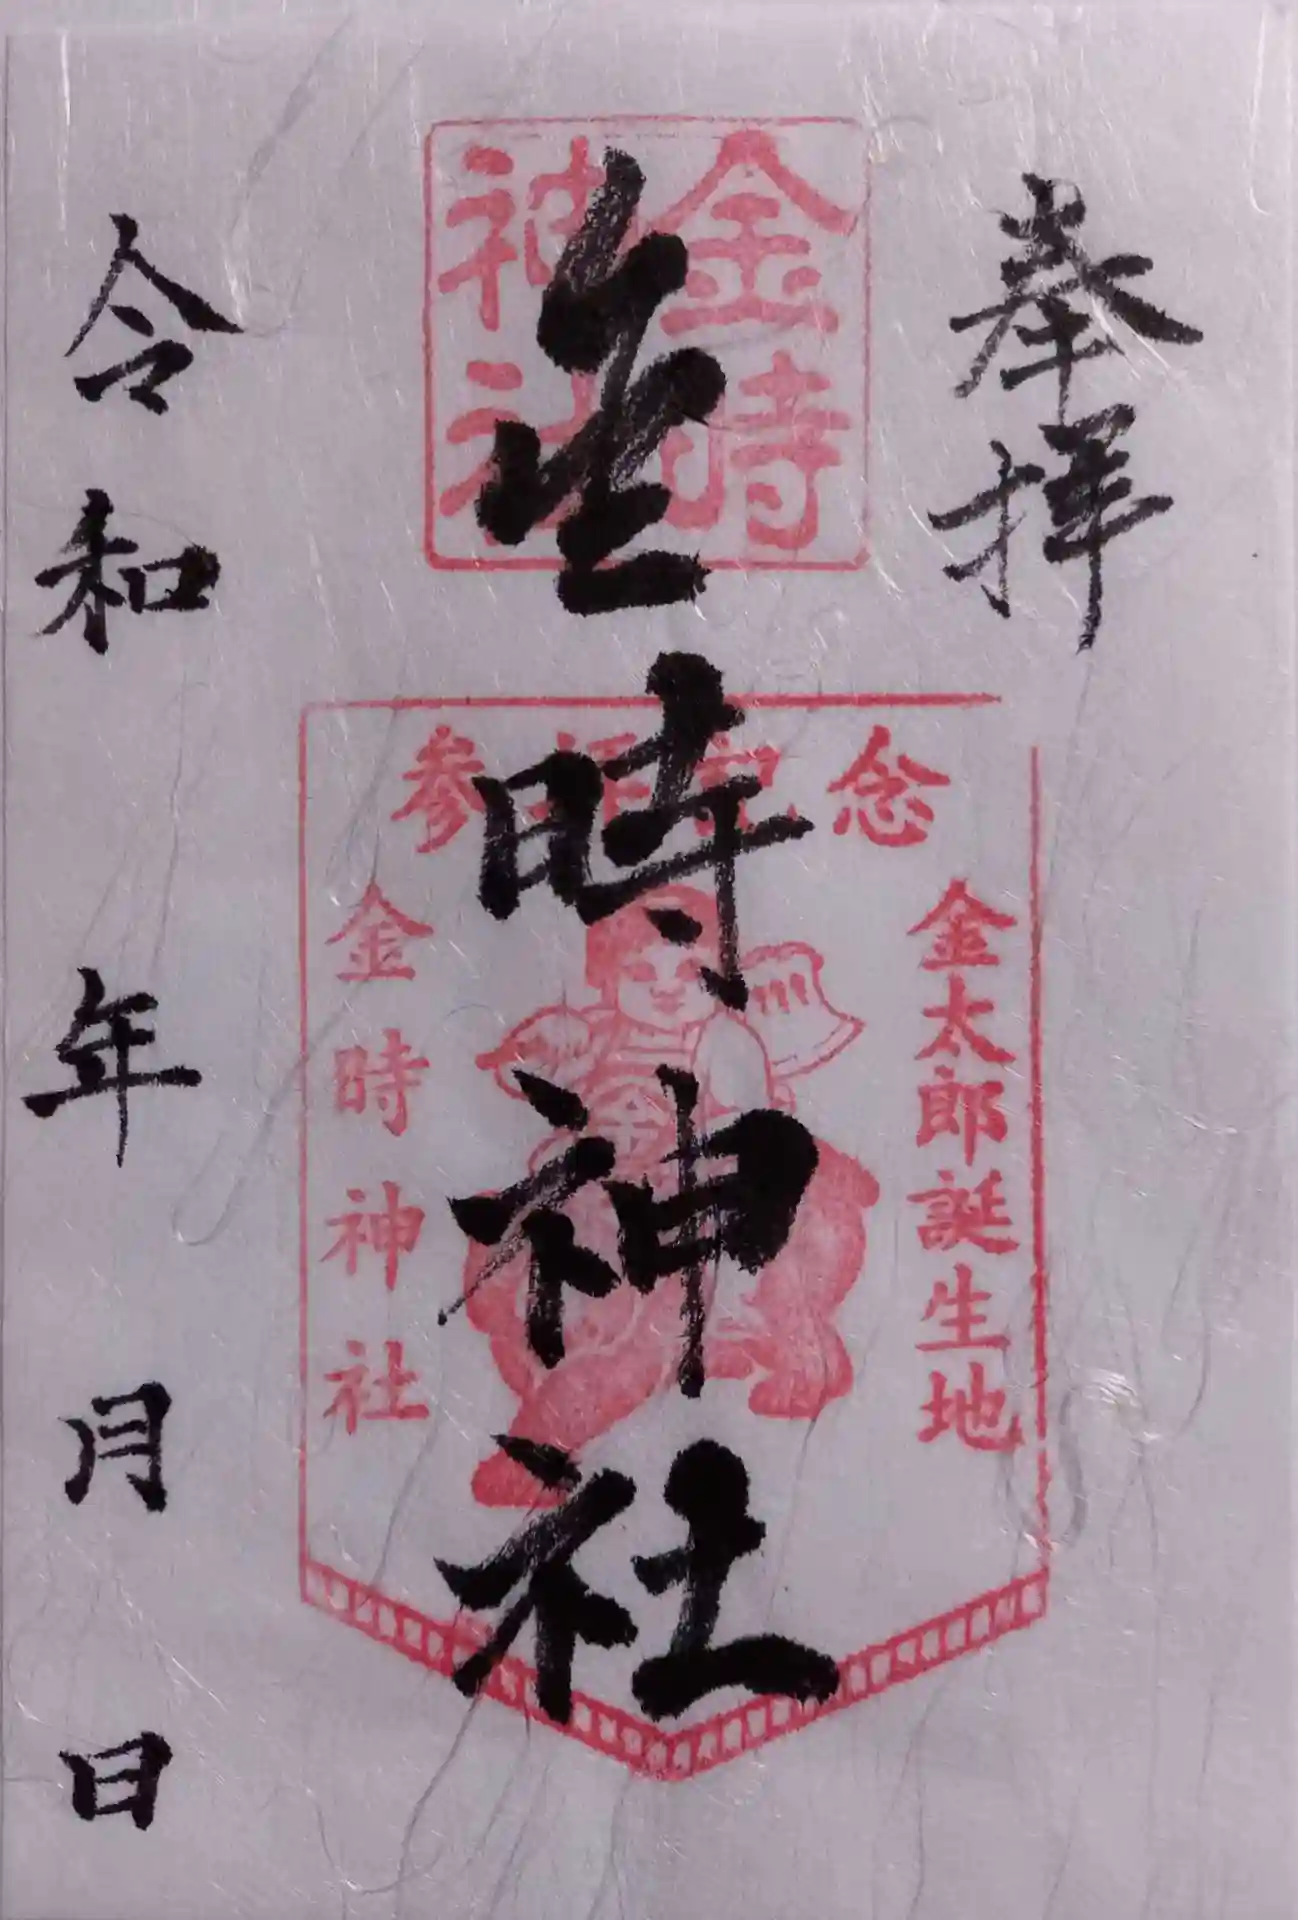 奉拝
金時
神社
金時神社
参拝記念
金太郎誕生地
金
金時神社
令和 年 月 日